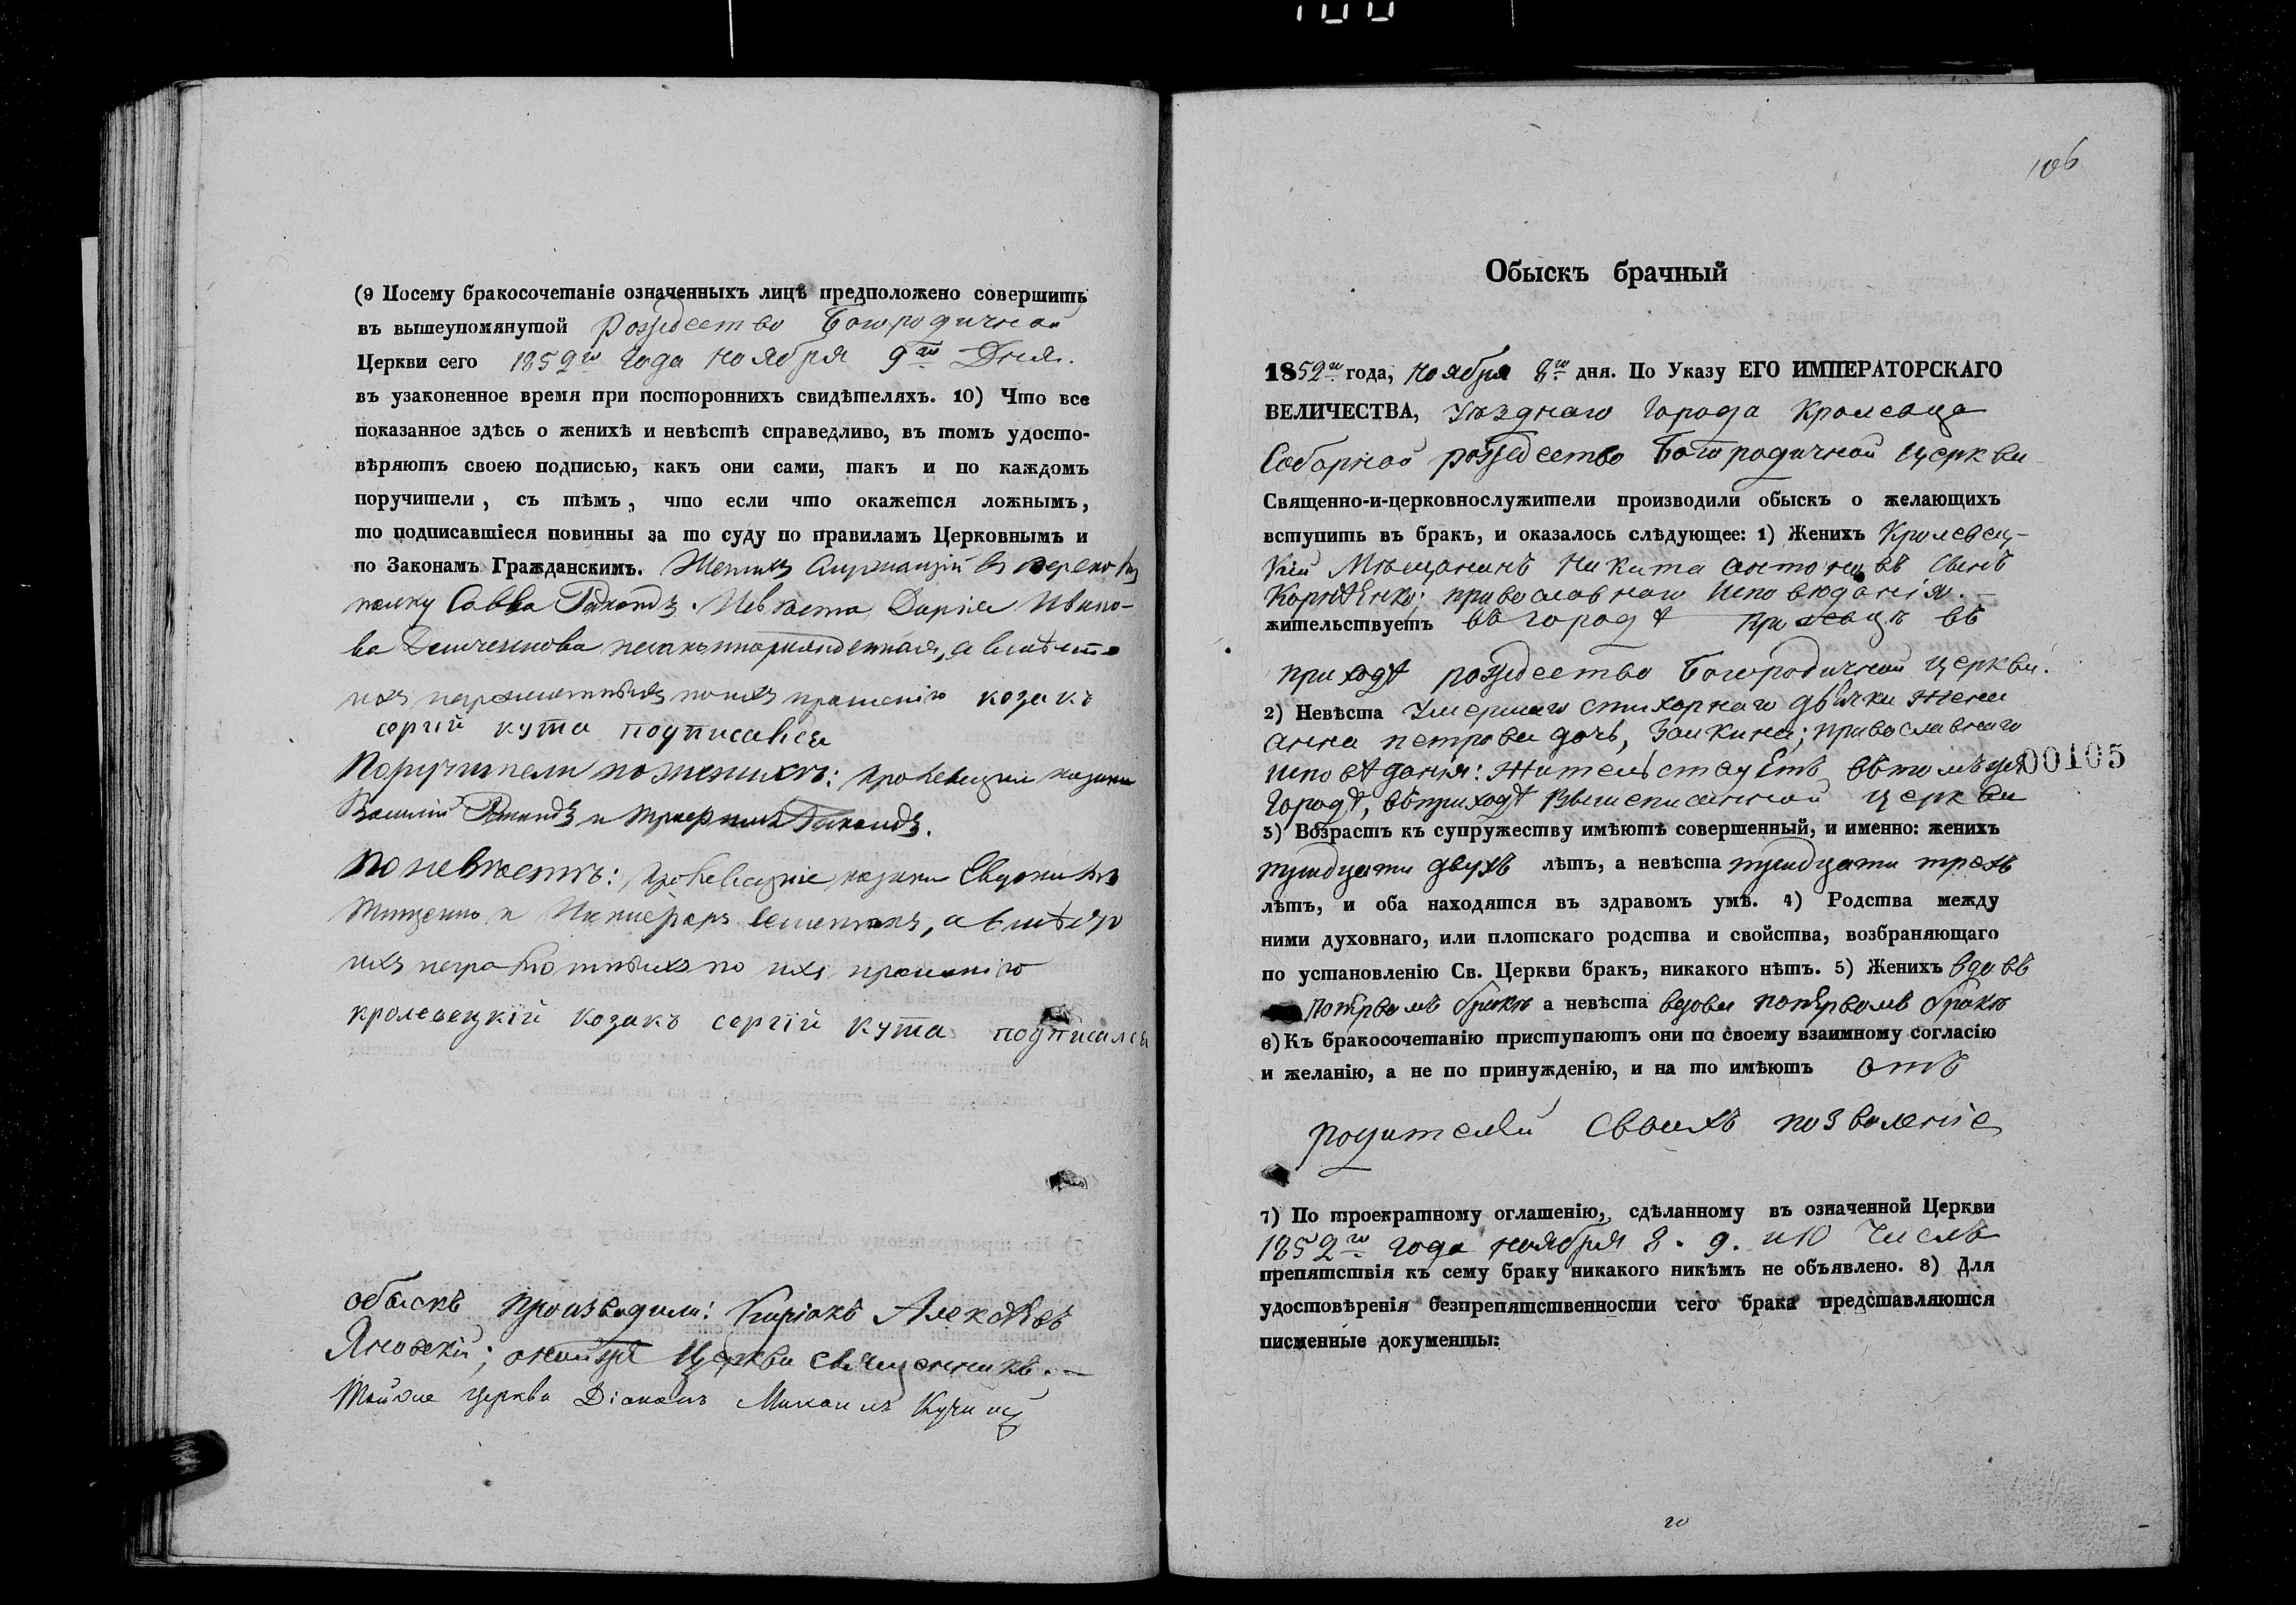 (9 Посему бракосочетаніе означенныхъ лицъ предположено совершить
въ вышеупомянутой Рождество Богородичной
Церкви сего 1852го года ноября 9го Дня.
въ узаконенное время при постороннихъ свидѣтеляхъ. 10) Что все
показанное здѣсь о женихѣ и невѣстѣ справедливо, въ томъ удосто-
вѣряютъ своею подписью, какъ они сами, такъ и по каждомъ
поручители, съ тѣмъ, что если что окажется ложнымъ,
то подписавшіеся повинны за то суду по правиламъ Церковнымъ и
по Законамъ Гражданскимъ. Женихъ Служащій въ
полку Савва. Невѣста Дарія Ивано-
ва, а вмѣсто
ихъ неграмотныхъ по ихъ прошенію козакъ
сергій кута подписался
Поручители по женихѣ: кролевецкіи козаки
Василій и
По невѣстѣ: кролевецкіе козаки Евдокимъ
Тищенко и Никифоръ, а вмѣсто
ихъ неграмотныхъ по ихъ прошенію
кролевецкій козакъ сергій кута подписался
обыскъ производили: Киріакъ Алексѣевъ
Яновскій; оной же Церкви священникъ.—
Той же церкви Діаконъ Михаилъ
106
Обыскъ брачный
1852го года, ноября 8го дня. По Указу ЕГО ИМПЕРАТОРСКАГО
ВЕЛИЧЕСТВА, уѣзднаго города Кролевца
Соборной рождество Богородичной церкви
Священно-и-церковнослужители производили обыскъ о желающихъ
вступить въ бракъ, и оказалось слѣдующее: 1) Женихъ Кролевец-
кій Мѣщанинъ Никита антоновъ сынъ
Корнѣенко; православнаго исповѣданія.—
жительствуетъ въ городѣ въ
приходѣ рождество Богородичной церкви.
2) Невѣста умершаго стихорнаго дьячка жена
анна петрова дочь, Заикина; православнаго
исповѣданія: жительствуетъ въ томъ же
00105
городѣ, въ приходѣ вышеписанной церкви
3) Возрастъ къ супружеству имѣютъ совершенный, и именно: женихъ
тридцати двухъ лѣтъ, а невѣста тридцати трехъ
лѣтъ, и оба находятся въ здравомъ умѣ. 4) Родства между
ними духовнаго, или плотскаго родства и свойства, возбраняющаго
по установленію Св. Церкви бракъ, никакого нѣтъ. 5) Женихъ вдовъ
по первомъ бракѣ а невѣста вдова по первомъ бракѣ
6) Къ бракосочетанію приступаютъ они по своему взаимному согласію
и желанію, а не по принужденію, и на то имѣютъ отъ
родителей своихъ позволеніе
7) По троекратному оглашенію, сдѣланному въ означенной Церкви
1852го года ноября 8. 9. и 10 числъ
препятствія къ сему браку никакого никѣмъ не объявлено. 8) Для
удостовѣренія безпрепятственности сего брака представляются
писменные документы: